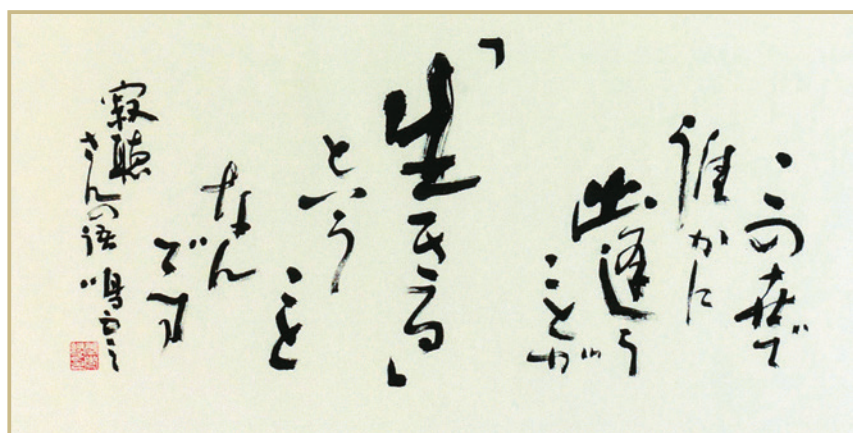 この世で
誰かに
出逢う
ことが
「生きる」
という
こと
なん
です
寂聴
さんの語